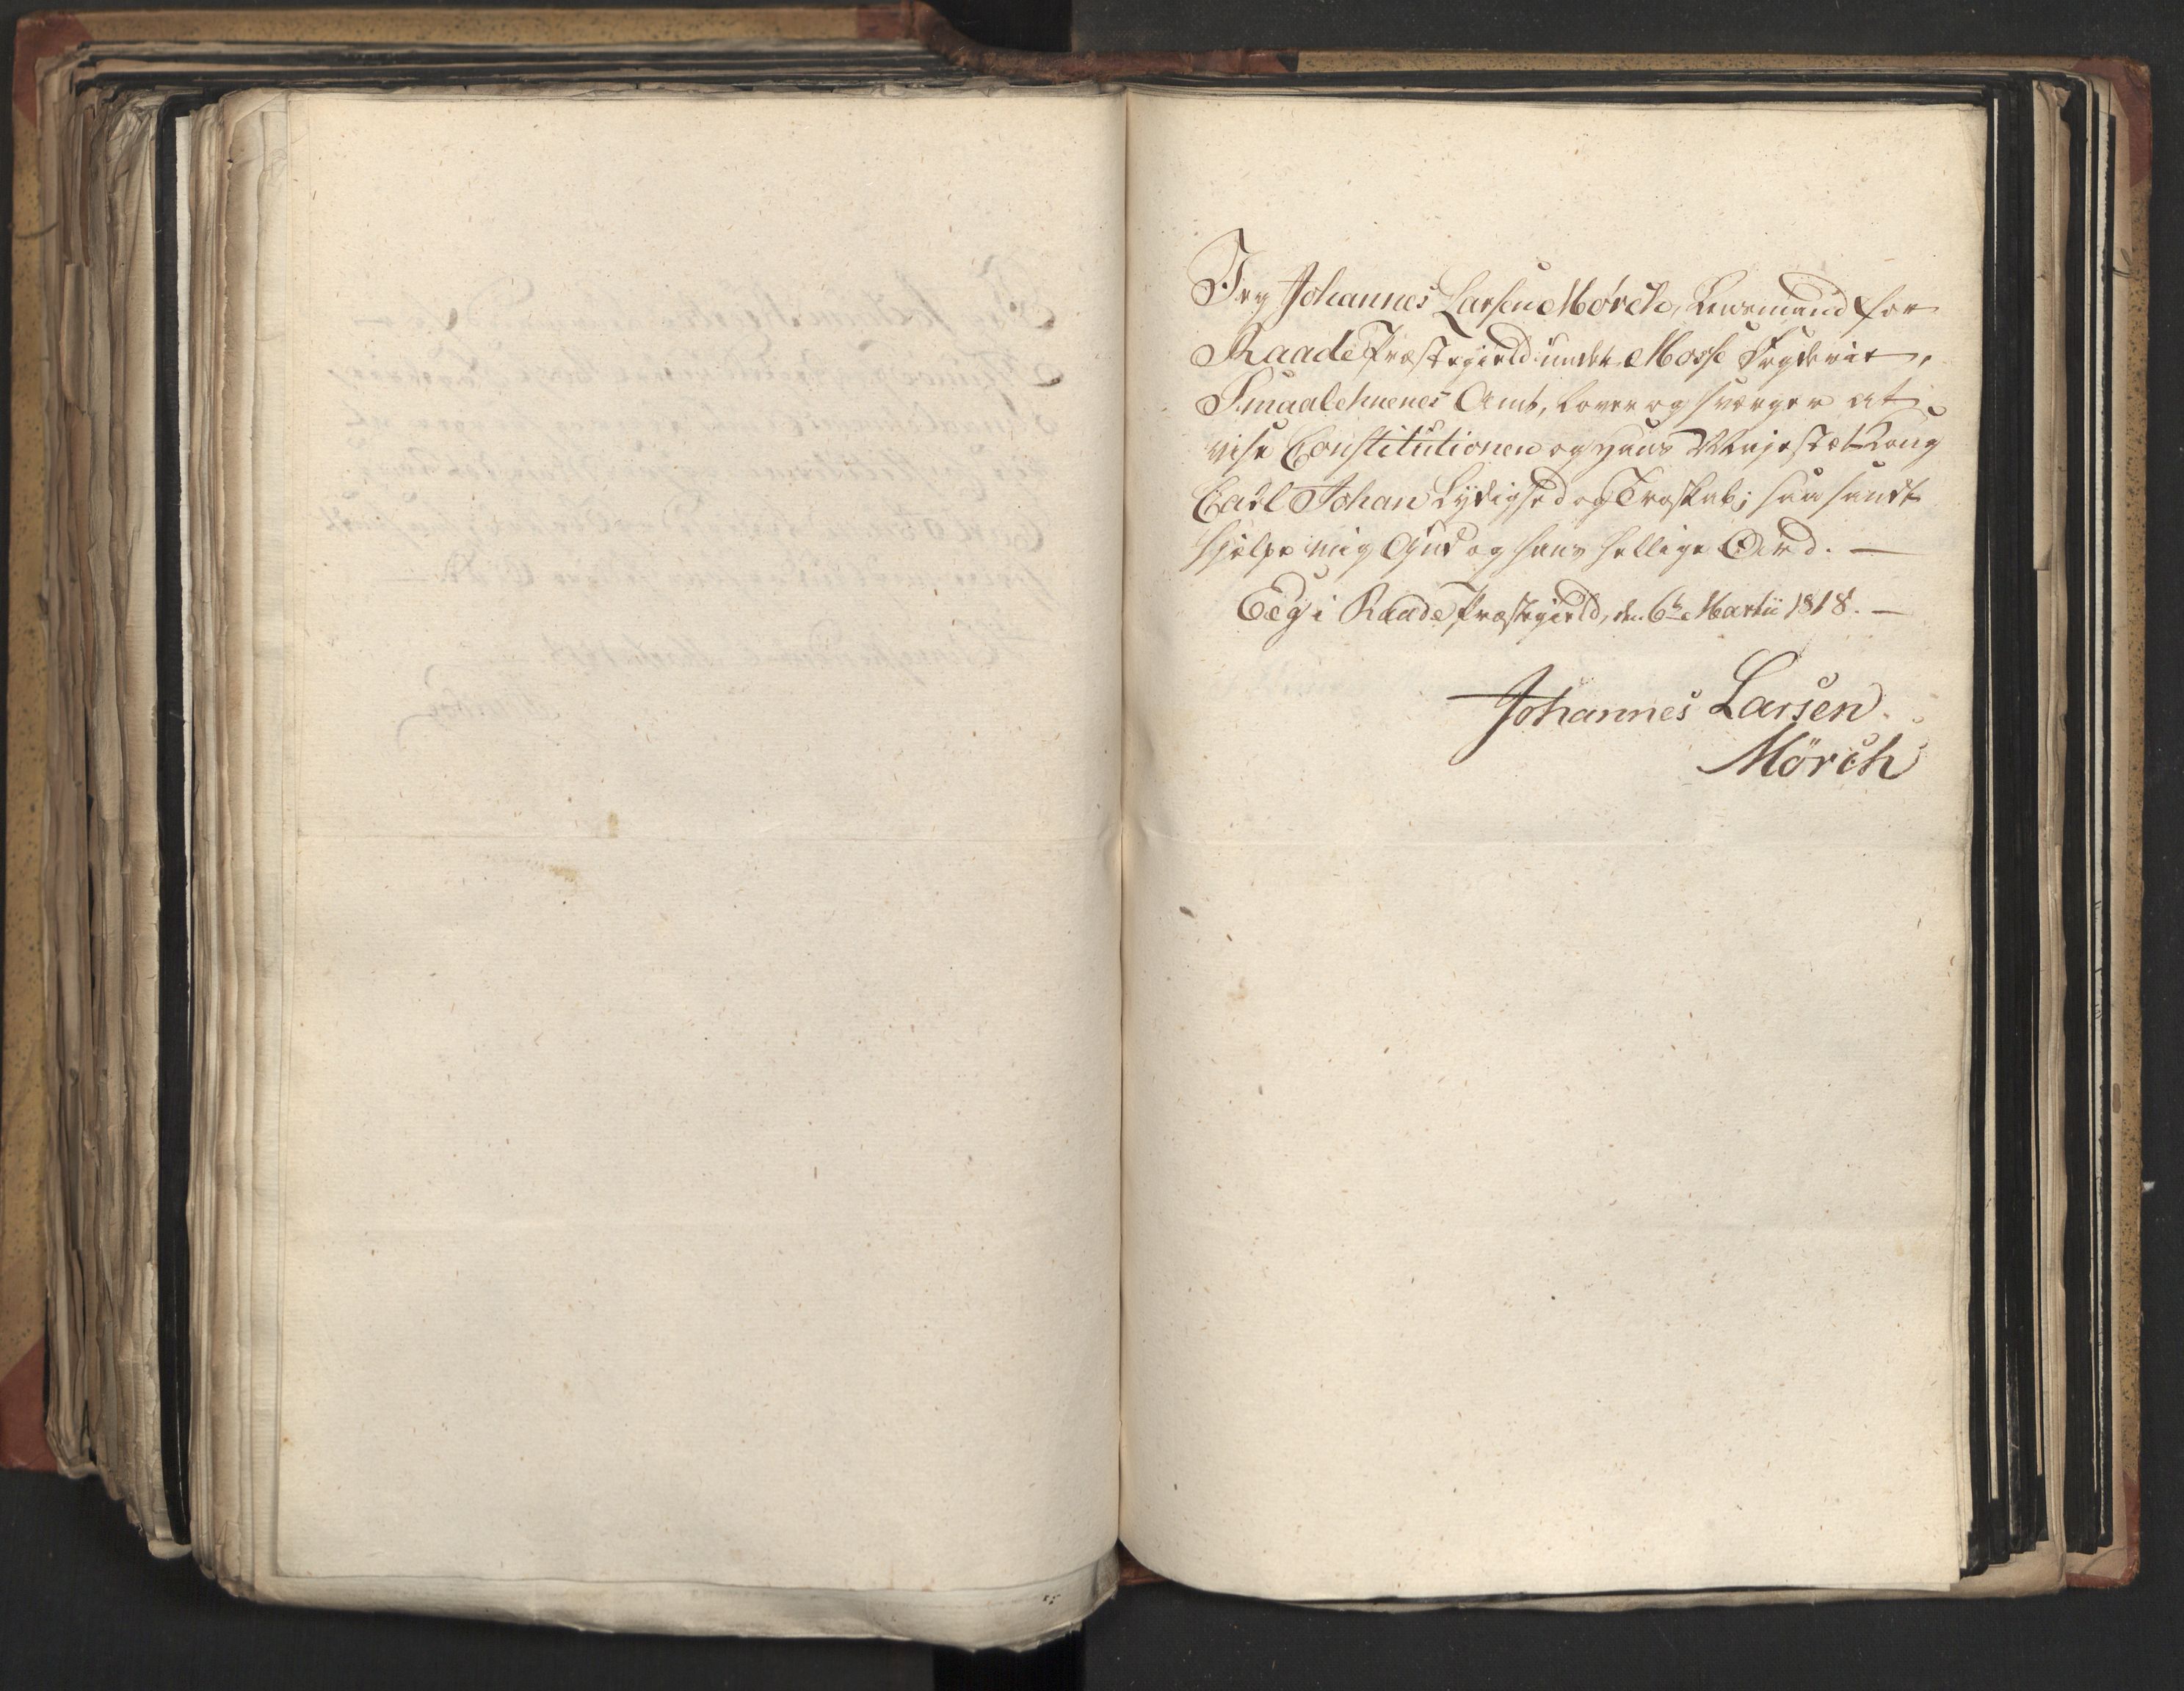 Jeg Johannes Larsen Mørch, Lensmand for
Raade Præstegield under Mosse Fogderie,
Smaalehnenes Amt, lover og sværger at
vise Constitutionen og Hans Majestæt Kong
Carl Johan Lydighed og Troskab; saa sandt
hjelpe mig Gud og hans hellige Ord. —
Eeg i Raade Præstegield, den 6te Martii 1818. —
Johannes Larsen
Mörch